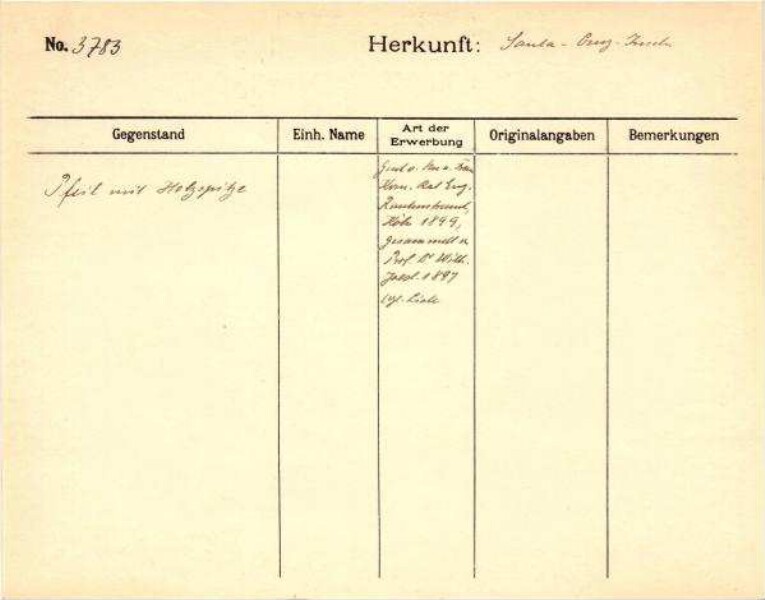 No. 3783 Herkunft: Santa-Cruz-Inseln
Gegenstand Einh. Name Art der Erwerbung Originalangaben Bemerkungen
Pfeil mit Holzspitze
Kom. Rat Eug.
Rautenstrauch,
Köln 1899,
gesammelt v.
Prof. Dr Wilh.
Joest 1897
vgl. Liste